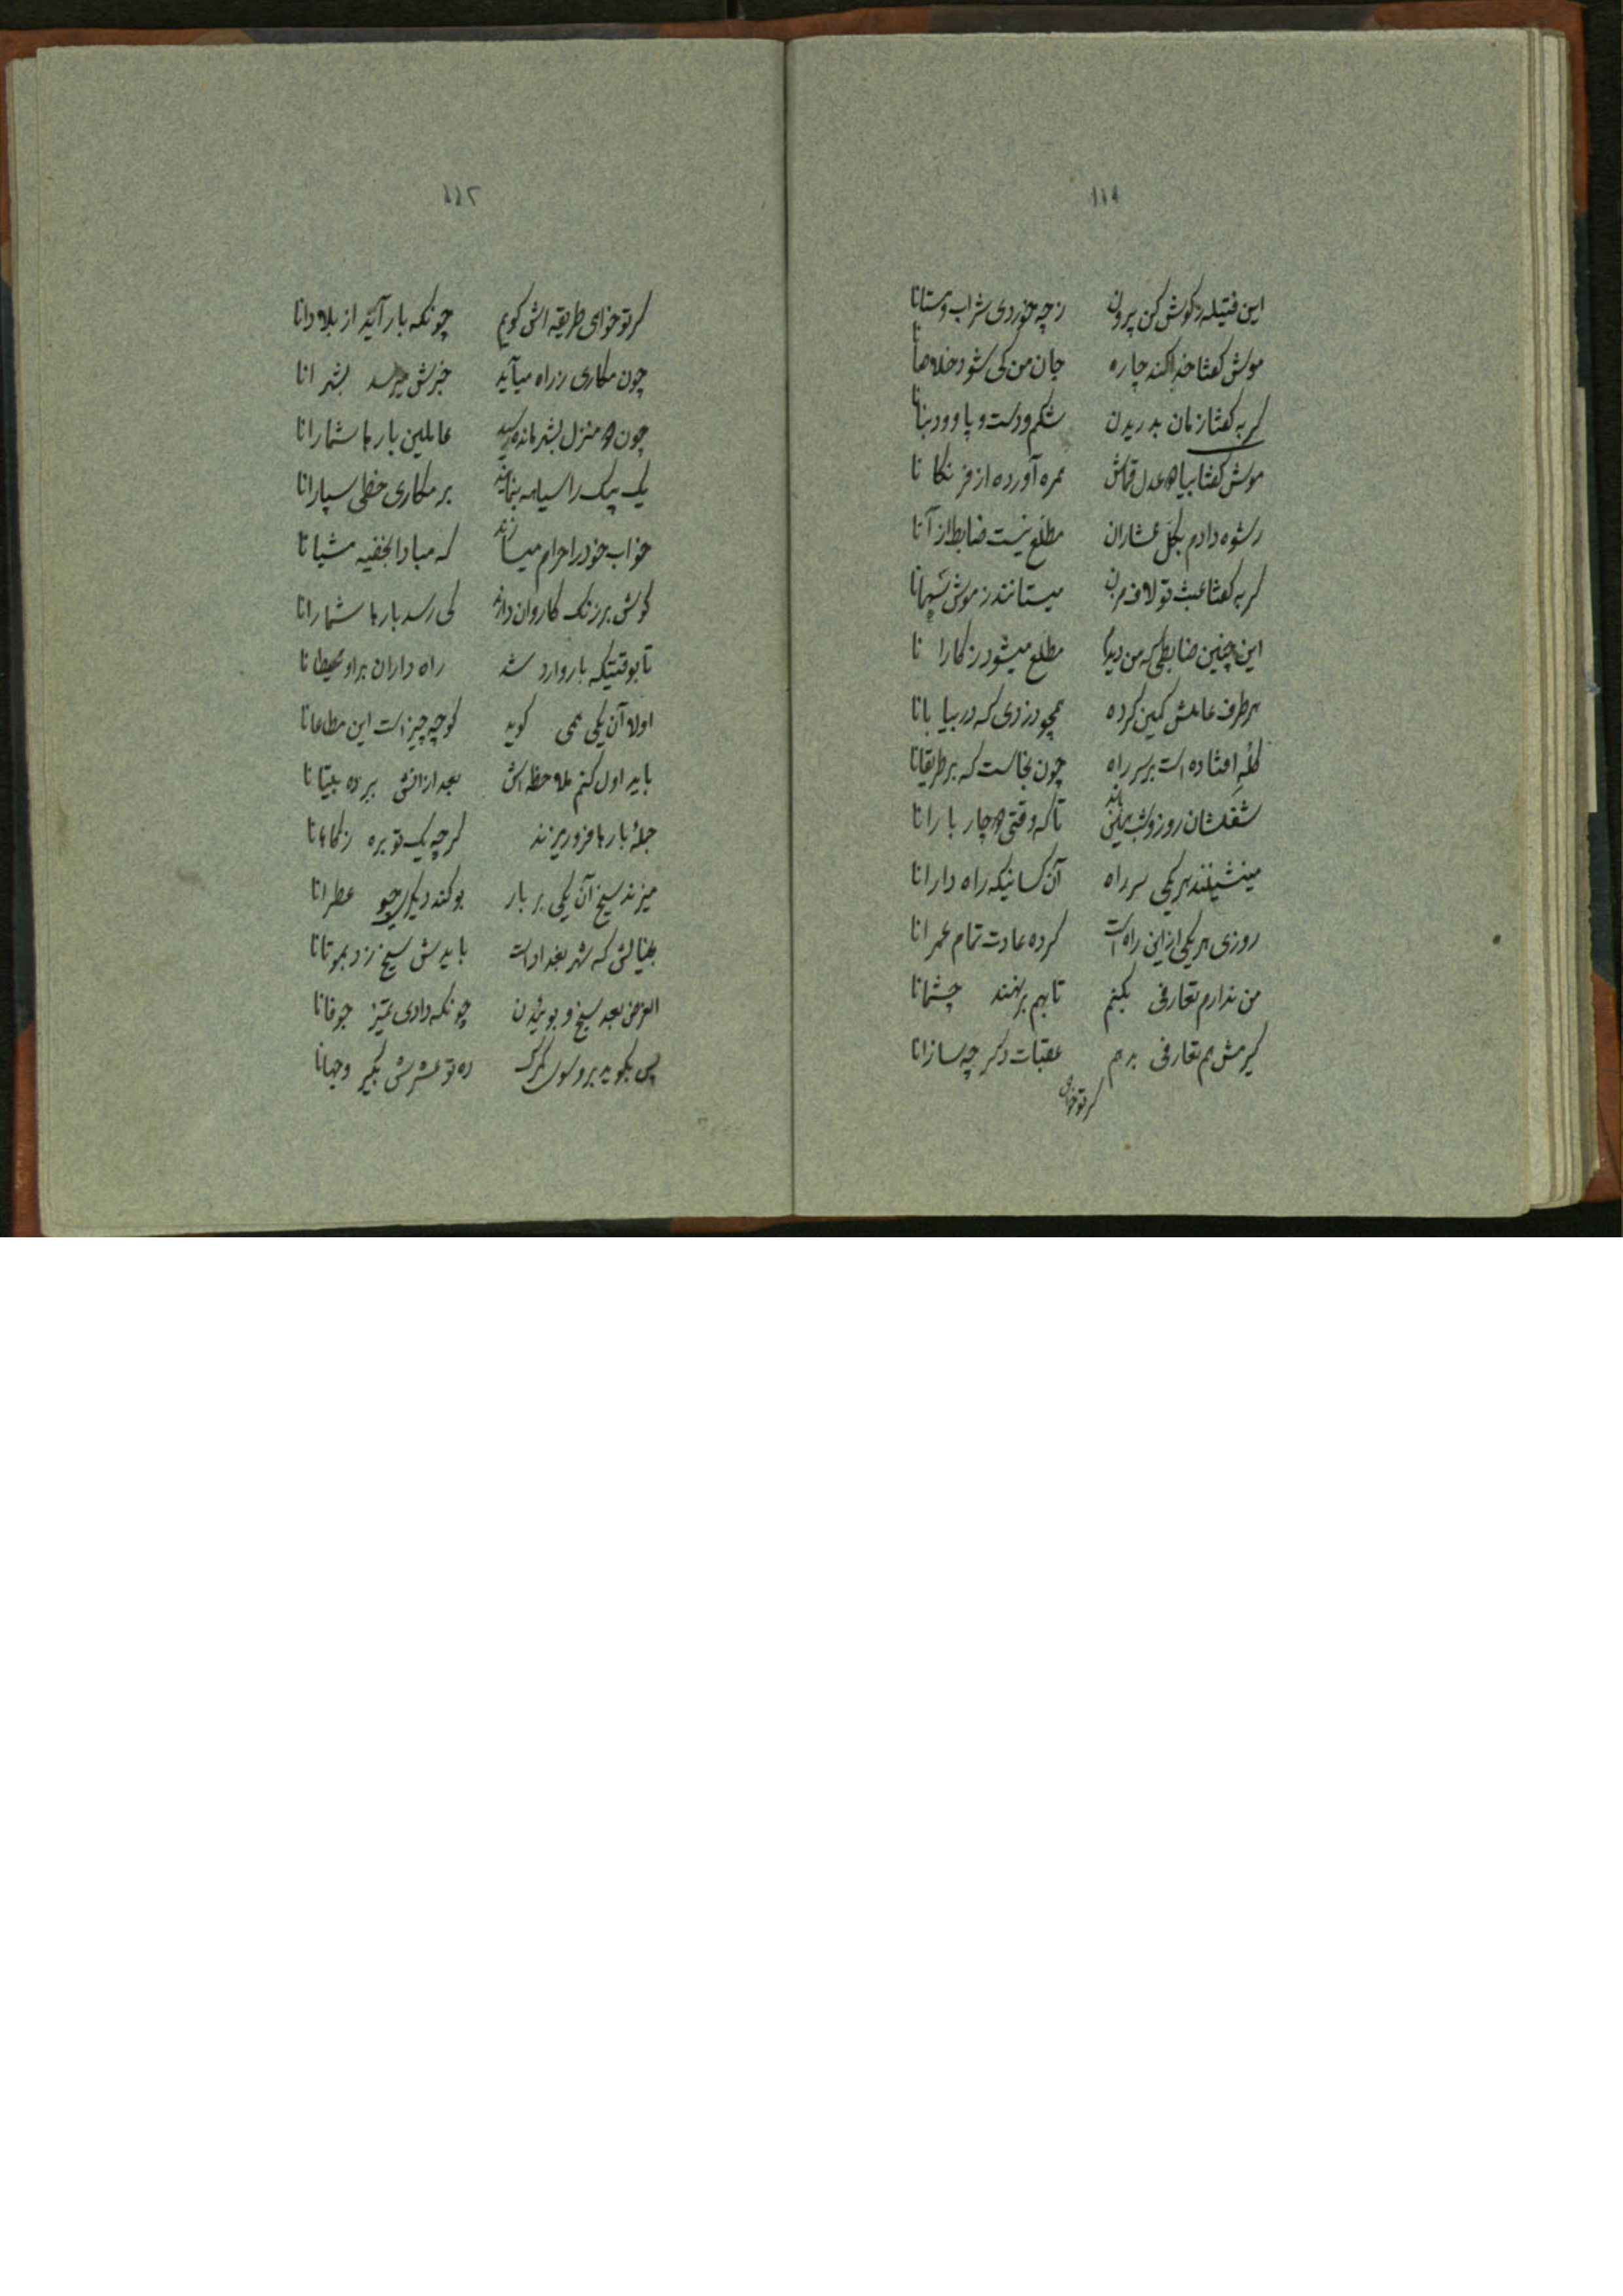 ۱۱۱
این فتیله ز گوش کن بیرون ز چه خوردی شراب و مستانا
موش گفتا خدا کند چاره جان من کی شود خلاصانا
گربه گفتا زمان بدریدن شکم و دست و پا و دنبانا
موش گفتا بیا ده عدل قماش عمره آورده از فرنگانا
رشوه دادم بکل عشاران مطلع نیست ضابط از آنا
گربه گفتا عبث تو لاف مزن میستانند ز موش
این چنین ضابطی که من دیدم مطلع میشود ز کارانا
هر طرف عاملش کمین کرده همچو دزدی که در بیابانا
کله افتاده است بر سر راه چون نجاست که بر طریقانا
شغلشان روز و شب همین باشد تا که وقتی دچار بارانا
مینشینند هر یکی سر راه آن کسانیکه راه دارانا
روزی هر یکی از این راه است کرده عادت تمام عمرانا
من ندارم تعارفی بکنم تا بهم بر نهند چشمانا
گیرمش هم تعارفی بدهم عقبات دگر چه سازانا
گر تو خواهی
۱۱۲
گر تو خواهی طریقه اش گویم چونکه بار آید از بلادانا
چون مکاری ز راه میآید خبرش میرسد بشهرانا
چون ده منزل بشهر مانده رسید عاملین بارها شمارانا
یک بیک را سیاهه بنمایند بر مکاری خطی سپارانا
خواب خود را حرام میسازند که مبادا بخفیه مشیانا
گوش بر زنگ کاروان دارند کی رسد بارها شمارانا
تا بوقتیکه بار وارد شد راه داران بر او محیطانا
اولا آن یکی همی گوید کو چه چیز است این مطاعانا
باید اول کنم ملاحظه اش بعد از آنش برده بیتانا
جملهٔ بارها فرو ریزند گرچه یک توبره ز کاهانا
میزند سیخ آن یکی بر بار بو کند دیگری چو عطرانا
بخیالش که شهر بغداد است بایدش سیخ زد بموتانا
الغرض بعد سیخ و بوئیدن چونکه دادی تمیز جوفانا
پس بگوید برو بسوی گمرک ده تو عشرش بگیر وجهانا